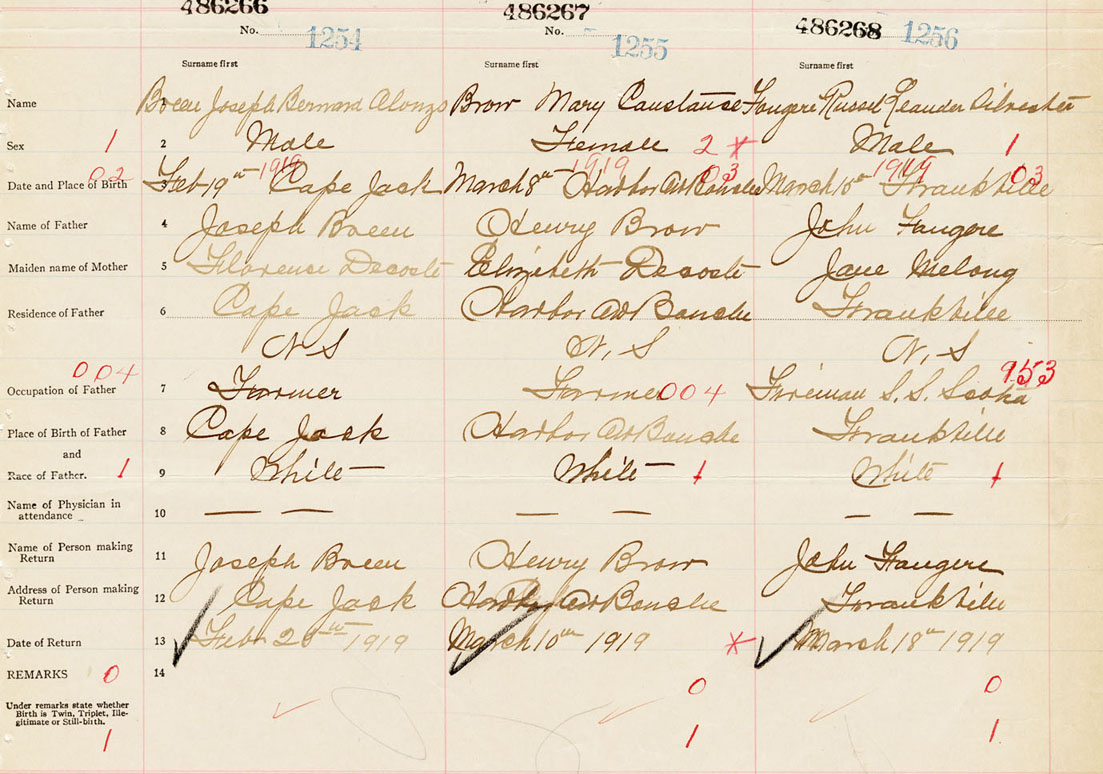 486266 486267 486268
No. 1254 No. 1255 1256
Surname first Surname first Surname first
Name 1 Breen Joseph Bernard Alonzo Brow Mary Constance Fougere Russel Leander Silvester
Sex 1 2 Male Female 2 * Male 1
Date and Place of Birth 02 3 Feb 19th 1919 Cape Jack March 8th 1919 Harbor Au Bouche 03 March 10th 1919 Frankville 03
Name of Father 4 Joseph Breen Henry Brow John Fougere
Maiden name of Mother 5 Florence Decoste Elizabeth Decoste Jane Melong
Residence of Father 6 Cape Jack Harbor Au Bouche Frankville
N S N, S N, S
004 953
Occupation of Father 7 Farmer Farmer 004 Fireman S. S. Scotia
Place of Birth of Father 8 Cape Jack Harbor Au Bouche Frankville
and
Race of Father. 1 9 White White 1 White 1
Name of Physician in
attendance 10 — — — — — —
Name of Person making
Return 11 Joseph Breen Henry Brow John Fougere
Address of Person making
Return 12 Cape Jack Harbor Au Bouche Frankville
Date of Return 13 Feb 20th 1919 March 10th 1919 * March 18th 1919
REMARKS 0 14 0 0
Under remarks state whether
Birth is Twin, Triplet, Ille-
gitimate or Still-birth.
1 1 1